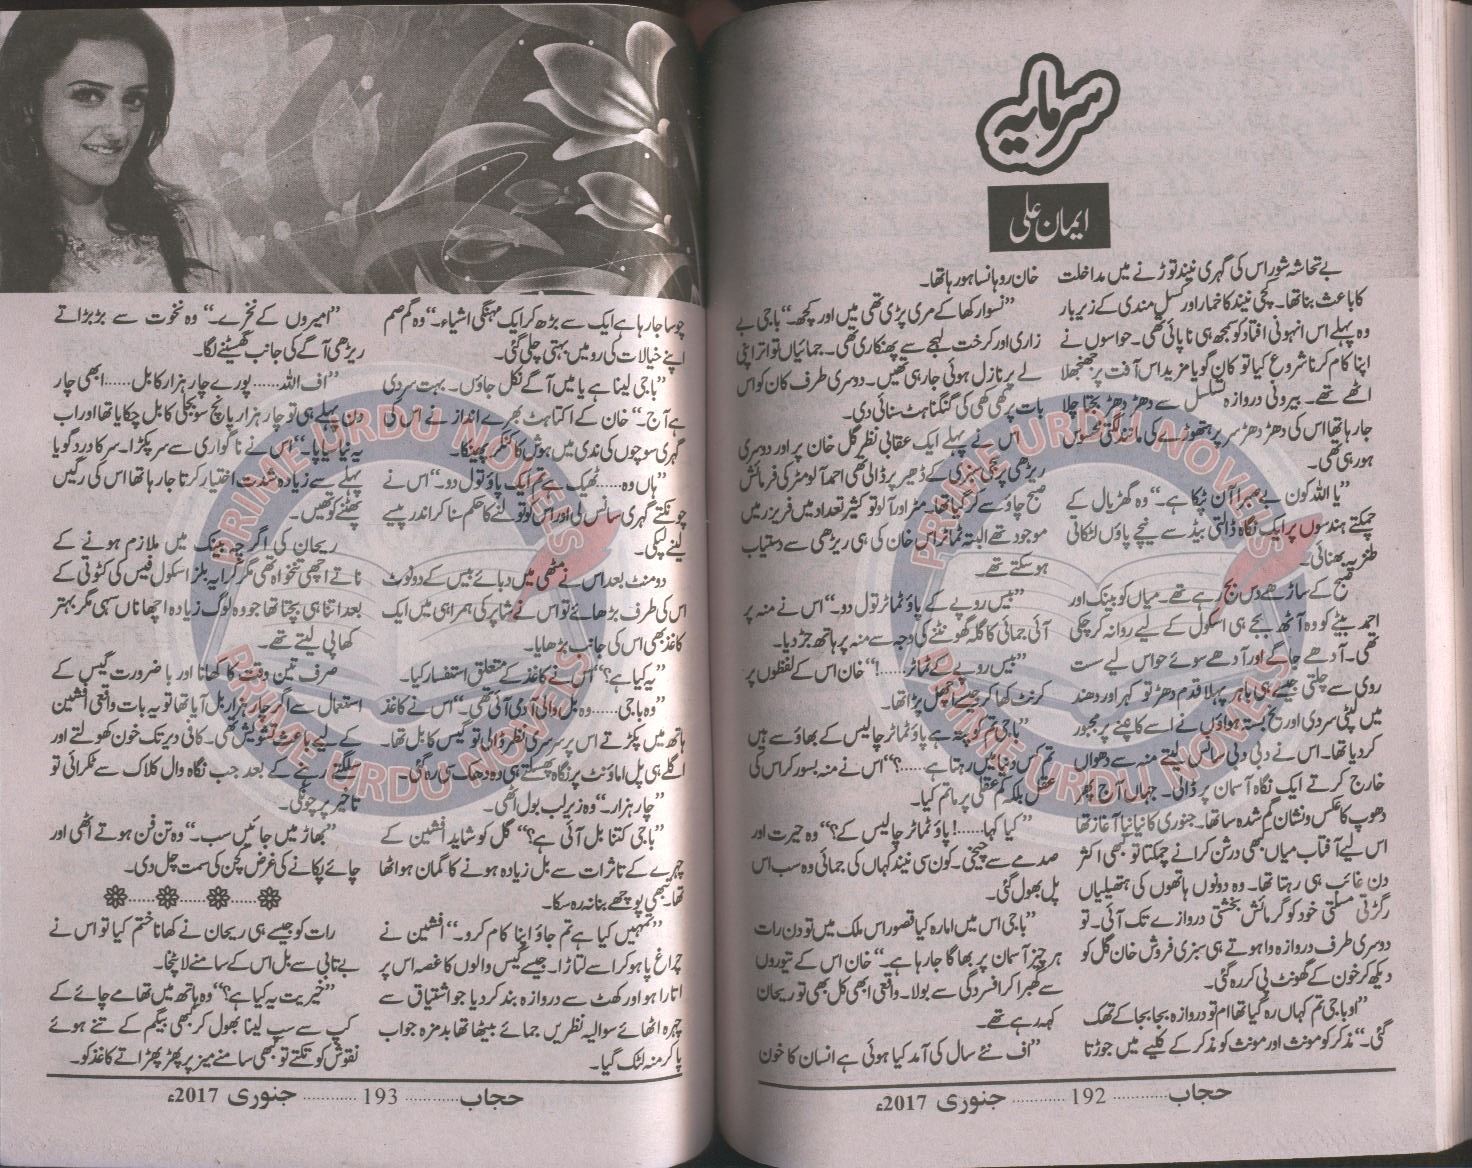 سرمایہ
ایمان علی
بے تحاشہ شور اس کی گہری نیند توڑنے میں مداخلت
کا باعث بنا تھا۔ کچی نیند کا خمار اور کسل مندی کے زیر بار
وہ پہلے اس انہونی افتاد کو سمجھ ہی نا پائی تھی۔ حواسوں نے
اپنا کام کرنا شروع کیا تو کان گویا مزید اس آفت پر جھنجھلا
اٹھے تھے۔ بیرونی دروازہ تسلسل سے دھڑ دھڑ بجتا چلا
جا رہا تھا اس کی دھڑ دھڑ سر پر ہتھوڑے کی مانند لگتی محسوس
ہو رہی تھی۔
”یا اللہ کون بے صبرا آن ٹپکا ہے۔“ وہ گھڑیال کے
چمکتے ہندسوں پر ایک نگاہ ڈالتی بیڈ سے نیچے پاؤں لٹکاتی
طنزیہ بھنائی۔
صبح کے ساڑھے دس بج رہے تھے۔ میاں کو بینک اور
احمد بیٹے کو وہ آٹھ بجے ہی اسکول کے لیے روانہ کر چکی
تھی۔ آدھے جاگے اور آدھے سوئے حواس لیے سست
روی سے چلتی جیسے ہی باہر پہلا قدم دھرا تو کہر اور دھند
میں لپٹی سردی اور یخ بستہ ہواؤں نے اسے کانپنے پر مجبور
کر دیا تھا۔ اس نے دبی دبی سانس لیتے منہ سے دھواں
خارج کرتے ایک نگاہ آسمان پر ڈالی۔ جہاں آج پھر
دھوپ کا عکس و نشان گم شدہ سا تھا۔ جنوری کا نیا نیا آغاز تھا
اس لیے آفتاب میاں بھی درشن کرانے چمکتا تو بھی اکثر
دن غائب ہی رہتا تھا۔ وہ دونوں ہاتھوں کی ہتھیلیاں
رگڑتی مسلتی خود کو گرمائش بخشتی دروازے تک آئی۔ تو
دوسری طرف دروازہ وا ہوتے ہی سبزی فروش خان گل کو
دیکھ کر خون کے گھونٹ پی کر رہ گئی۔
”او باجی تم کہاں رہ گیا تھا ام تو دروازہ بجا بجا کے تھک
گئی۔“ مذکر کو مونث اور مونث کو مذکر کے کلیے میں جوڑتا
خان روہانسا ہو رہا تھا۔
”نسوار کھا کے مری پڑی تھی میں اور کچھ۔“ باجی بے
زاری اور کرخت لہجے سے پھنکاری تھی۔ جمائیاں تو اتر اپنی
لے پر نازل ہوئی جا رہی تھیں۔ دوسری طرف کان کو اس
بات پر کھی کھی کی گنگناہٹ سنائی دی۔
اس نے پہلے ایک عقابی نظر گل خان پر اور دوسری
ریڑھی پر سجی سبزی کے ڈھیر پر ڈالی تھی احمد آلو مٹر کی فرمائش
صبح چاؤ سے کر گیا تھا۔ مٹر اور آلو تو کثیر تعداد میں فریزر میں
موجود تھے البتہ ٹماٹر اس خان کی ہی ریڑھی سے دستیاب
ہو سکتے تھے۔
”بیس روپے کے پاؤ ٹماٹر تول دو۔“ اس نے منہ پر
آئی جمائی کا گلہ گھونٹنے کی وجہ سے منہ پر ہاتھ جڑ دیا۔
”بیس روپے کے ٹماٹر.....!“ خان اس کے لفظوں پر
کرنٹ کھا کر جیسے اچھل پڑا تھا۔
”باجی تم کو پتہ ہے پاؤ ٹماٹر چالیس کے بھاؤ سے ہیں
تم کس دنیا میں رہتا ہے.....؟“ اس نے منہ بسور کر اس کی
عقل بلکہ کم عقلی پر ماتم کیا۔
”کیا کہا.....! پاؤ ٹماٹر چالیس کے؟“ وہ حیرت اور
صدمے سے چیخی۔ کون سی نیند کہاں کی جمائی وہ سب اس
پل بھول گئی۔
”باجی اس میں امارہ کیا قصور اس ملک میں تو دن رات
ہر چیز آسمان پر بھاگا جا رہا ہے۔“ خان اس کے تیوروں
سے گھبرا کر افسردگی سے بولا۔ واقعی ابھی کل بھی تو ریحان
کہہ رہے تھے۔
”اف نئے سال کی آمد کیا ہوئی ہے انسان کا خون
حجاب.............192.............جنوری 2017ء
چوسا جا رہا ہے ایک سے بڑھ کر ایک مہنگی اشیاء۔“ وہ گم صم
اپنے خیالات کی رو میں بہتی چلی گئی۔
”باجی لینا ہے یا میں آگے نکل جاؤں۔ بہت سردی
ہے آج۔“ خان کے اکتاہٹ بھرے انداز نے اس کی
گہری سوچوں کی ندی میں ہوش کا کنکر پھینکا۔
”ہاں وہ..... ٹھیک ہے تم ایک پاؤ تول دو۔“ اس نے
چونکتے گہری سانس لی اور اس کو تولنے کا حکم سنا کر اندر پیسے
لینے لپکی۔
دو منٹ بعد اس نے مٹھی میں دبائے بیس کے دو نوٹ
اس کی طرف بڑھائے تو اس نے شاپر کی ہمراہی میں ایک
کاغذ بھی اس کی جانب بڑھایا۔
”یہ کیا ہے؟“ اس نے کاغذ کے متعلق استفسار کیا۔
”وہ باجی..... وہ بل والی آ دی آئی تھی۔“ اس نے کاغذ
ہاتھ میں پکڑتے اس پر سرسری نظر ڈالی تو گیس کا بل تھا۔
اگلے ہی پل اماؤنٹ پر نگاہ پھسلتے ہی وہ دھک سی رہ گئی۔
”چار ہزار۔“ وہ زیر لب بول اٹھی۔
”باجی کتنا بل آئی ہے؟“ گل کو شاید افشین کے
چہرے کے تاثرات سے بل زیادہ ہونے کا گمان ہوا تھا
تبھی پوچھے بنا نہ رہ سکا۔
”تمہیں کیا ہے تم جاؤ اپنا کام کرو۔“ افشین نے
چراغ پا ہو کر اسے لتاڑا۔ جیسے گیس والوں کا غصہ اس پر
اتارا ہو اور کھٹ سے دروازہ بند کر دیا جو اشتیاق سے
چہرہ اٹھائے سوالیہ نظریں جمائے بیٹھا تھا بدمزہ جواب
پا کر منہ لٹک گیا۔
”امیروں کے نخرے۔“ وہ نخوت سے بڑبڑاتے
ریڑھی آگے کی جانب گھسیٹنے لگا۔
”اف اللہ..... پورے چار ہزار کا بل..... ابھی چار
دن پہلے ہی تو چار ہزار پانچ سو بجلی کا بل چکایا تھا اور اب
یہ نیا سیاپا۔“ اس نے ناگواری سے سر پکڑا۔ سر کا درد گویا
پہلے سے زیادہ شدت اختیار کرتا جا رہا تھا اس کی رگیں
پھٹنے کو تھیں۔
ریحان کی اگرچہ بینک میں ملازم ہونے کے
ناتے اچھی تنخواہ تھی مگر کرایہ بلز اسکول فیس کی کٹوتی کے
بعد اتنا ہی بچتا تھا جو وہ لوگ زیادہ اچھا ناں سہی مگر بہتر
کھا پی لیتے تھے۔
صرف تین وقت کا کھانا اور با ضرورت گیس کے
استعمال سے اگر چار ہزار بل آیا تھا تو یہ بات واقعی افشین
کے لیے باعث تشویش تھی۔ کافی دیر تک خون کھولتے اور
سلگتے رہنے کے بعد جب نگاہ وال کلاک سے ٹکرائی تو
تاخیر پر چونکی۔
”بھاڑ میں جائیں سب۔“ وہ تن فن ہوتے اٹھی اور
چائے پکانے کی غرض کچن کی سمت چل دی۔
رات کو جیسے ہی ریحان نے کھانا ختم کیا تو اس نے
بے تابی سے بل اس کے سامنے لا پٹخا۔
”خیریت یہ کیا ہے؟“ وہ ہاتھ میں تھامے چائے کے
کپ سے سپ لینا بھول کر کبھی بیگم کے تنے ہوئے
نقوش کو تکتے تو کبھی سامنے میز پر پھڑپھڑاتے کاغذ کو۔
حجاب.............193.............جنوری 2017ء
PRIME URDU NOVELS
PRIME URDU NOVELS
PRIME URDU NOVELS
PRIME URDU NOVELS